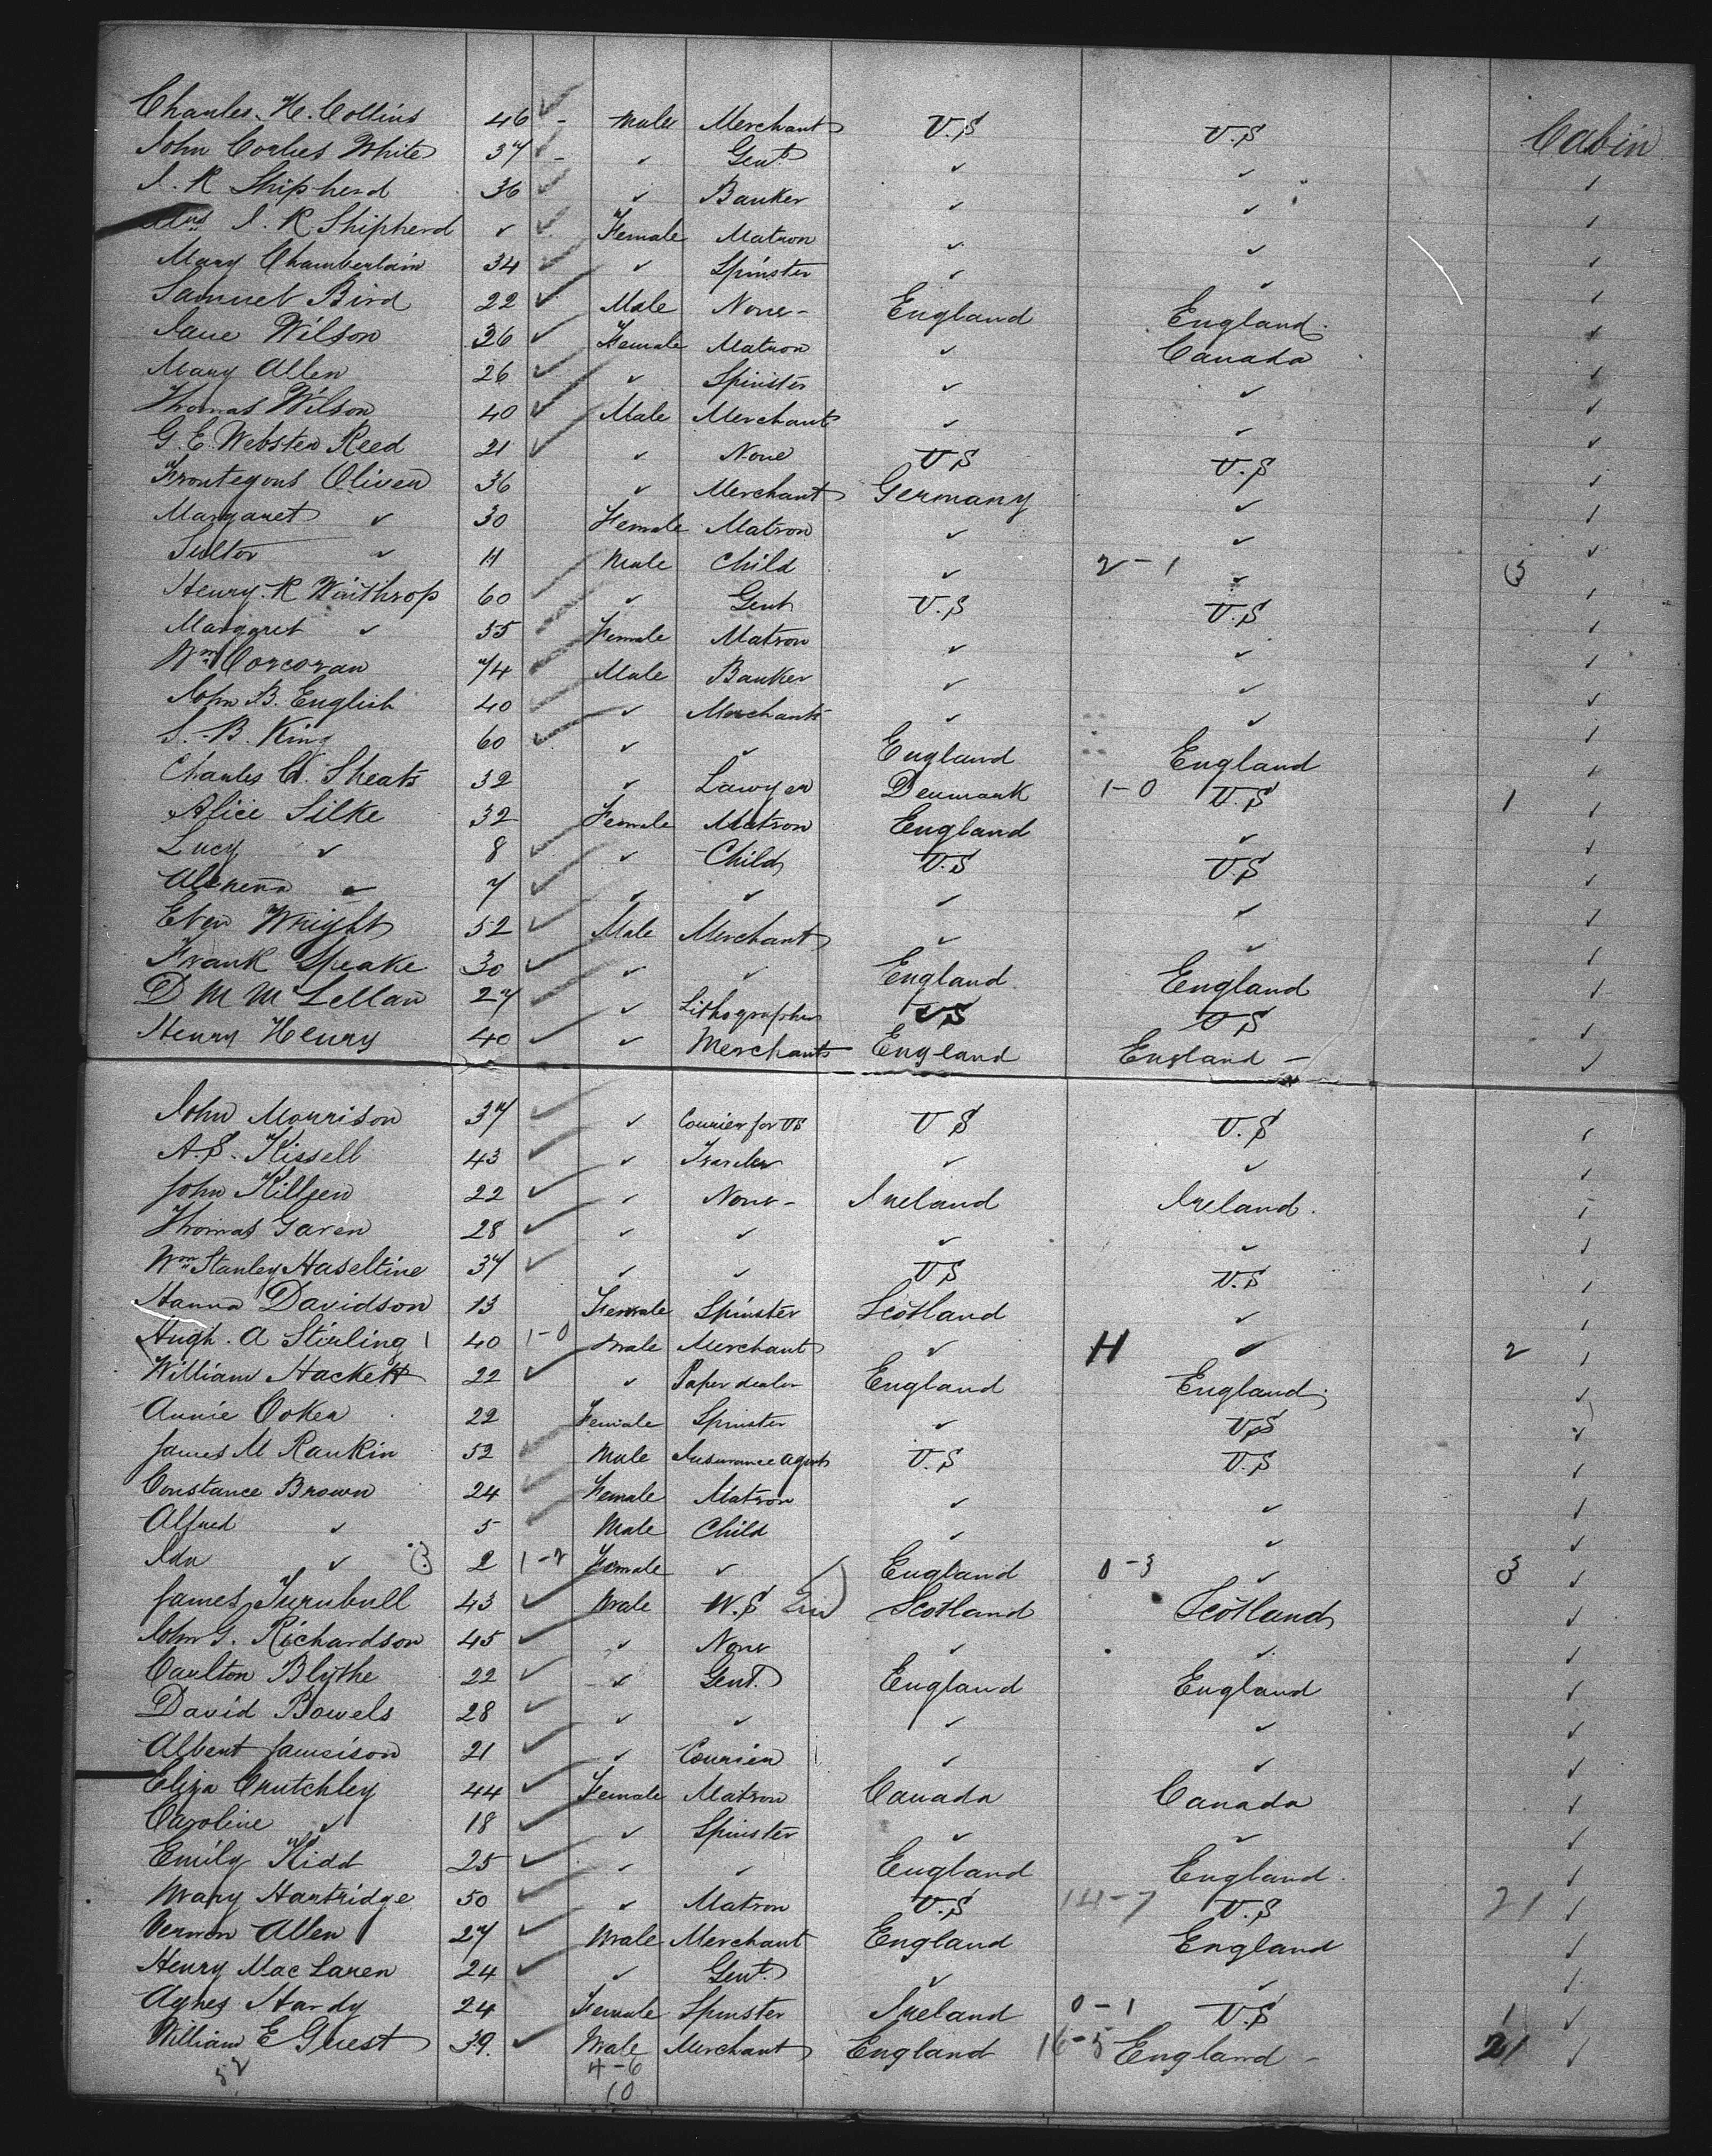 Charles. H. Collins 46 - Male Merchant U.S U.S Cabin
John Corlies White 37 - ✓ Gent ✓ ✓
I. R Shipherd 36 ✓ ✓ Banker ✓ ✓ ✓
Mrs I. R Shipherd ✓ ✓ Female Matron ✓ ✓ ✓
Mary Chamberlain 34 ✓ ✓ Spinster ✓ ✓ ✓
Samuel Bird 22 ✓ Male None - England England. ✓
Jane Wilson 36 ✓ Female Matron ✓ Canada ✓
Mary Allen 26 ✓ ✓ Spinster ✓ ✓ ✓
Thomas Wilson 40 ✓ Male Merchant ✓ ✓ ✓
G. E. Webster Reed 21 ✓ ✓ None U S U.S ✓
Oliver 36 ✓ Merchant Germany ✓ ✓
Margaret ✓ 30 Female Matron ✓ ✓ ✓
✓ 11 Male Child ✓ 2 - 1 ✓ 3 ✓
Henry. R Winthrop 60 ✓ ✓ Gent U.S U.S ✓
Margaret ✓ 55 ✓ Female Matron ✓ ✓ ✓
Wm Corcoran 74 ✓ Male Banker ✓ ✓ ✓
John B. English 40 ✓ ✓ Merchant ✓ ✓ ✓
S. B. King 60 ✓ ✓ ✓ England England ✓
Charles C. Sheats 32 ✓ Lawyer Denmark 1-0 U.S 1 ✓
Alice Silke 32 Female Matron England ✓ ✓
Lucy ✓ 8 ✓ ✓ Child U.S U.S ✓
✓ 7 ✓ ✓ ✓ ✓ ✓ ✓
Wright 52 ✓ Male Merchant ✓ ✓ ✓
Frank Speake 30 ✓ ✓ ✓ England England ✓
D M McLellan 27 ✓ ✓ Lithographer US US ✓
Henry Henry 40 ✓ ✓ Merchant England England - ✓
John Morrison 37 ✓ ✓ Courier for US U S U.S ✓
A. S. Kissell 43 ✓ ✓ ✓ ✓ ✓
John Killeen 22 ✓ ✓ None - Ireland Ireland. ✓
Thomas Garen 28 ✓ ✓ ✓ ✓ ✓ ✓
Wm Stanley Haseltine 37 ✓ ✓ ✓ US U.S ✓
Hanna Davidson 13 Female Spinster Scotland ✓ ✓
Hugh. A Stirling 1 40 1-0 Male Merchant ✓ H ✓ 2 ✓
William Hackett 22 ✓ ✓ Paper dealer England England. ✓
Annie Coker 22 Female Spinster ✓ US ✓
James M Rankin 52 ✓ Male Insurance agent U.S U.S ✓
Constance Brown 24 ✓ Female Matron ✓ ✓ ✓
Alfred ✓ 5 ✓ Male Child ✓ ✓ ✓
Ida ✓ 3 2 1-2 Female ✓ England 0-3 ✓ 3 ✓
James Turnbull 43 ✓ Male W.S Scotland Scotland ✓
John G. Richardson 45 ✓ ✓ None ✓ ✓ ✓
Carlton Blythe 22 ✓ ✓ Gent. England England ✓
David Bowels 28 ✓ ✓ ✓ ✓ ✓ ✓
Albert Jameison 21 ✓ ✓ Courier ✓ ✓ ✓
Eliza Crutchley 44 ✓ Female Matron Canada Canada ✓
Caroline ✓ 18 ✓ ✓ Spinster ✓ ✓ ✓
Emily Kidd 25 ✓ ✓ ✓ England England. ✓
Mary Hartridge 50 ✓ ✓ Matron U.S 14-7 U.S 21 ✓
Vernon Allen 27 ✓ Male Merchant England England ✓
Henry MacLaren 24 ✓ ✓ Gent. ✓ ✓ ✓
Agnes Hardy 24 Female Spinster Ireland 0-1 U.S 1 ✓
William E Guest 39. ✓ Male Merchant England 16-5 England - 21 ✓
52 4-6
10